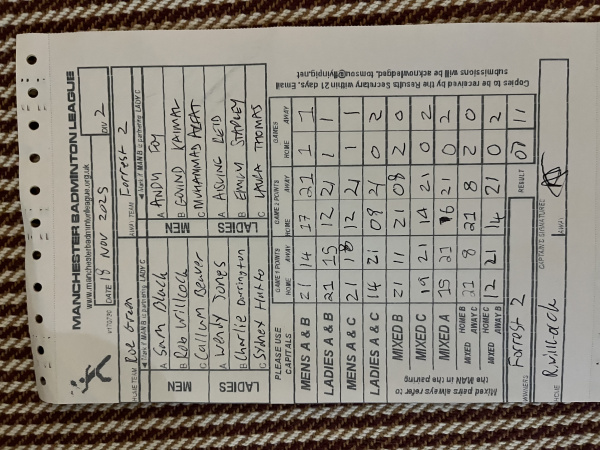 MANCHESTER BADMINTON LEAGUE
www.manchesterbadmintonleague.org.uk
DATE 18 Nov 2025 DIV 2
HOME TEAM Roe Green AWAY TEAM Forrest 2
MEN
A Sam Olack A ANDY FOY
B Rob Willcock B GOVIND KAIMAL
C Callum Beaver C MUHAMMAD AFFAT
LADIES
A Wendy Jones A AISLING REID
B Charlie Dorrington B EMILY SHAPLEY
C Sydney Hutto C LAURA THOMAS
PLEASE USE CAPITALS GAME 1 POINTS GAME 2 POINTS GAMES
HOME AWAY HOME AWAY
MENS A & B 21 14 17 21 1 1
LADIES A & B 21 15 12 21 1 1
MENS A & C 21 18 12 21 1 1
LADIES A & C 14 21 09 21 0 2
MIXED B 21 11 21 08 2 0
MIXED C 19 21 14 21 0 2
MIXED A 15 21 16 21 0 2
MIXED HOME B AWAY C 21 8 21 8 2 0
MIXED HOME C AWAY B 12 21 14 21 0 2
Mixed pairs always refer to the MAN in the pairing
WINNERS Forrest 2 RESULT 07 11
CAPTAIN'S SIGNATURE:
HOME R.Willcock AWAY
Copies to be received by the Results Secretary within 21 days, Email
submissions will be acknowledged, tomsou@flyinpig.net